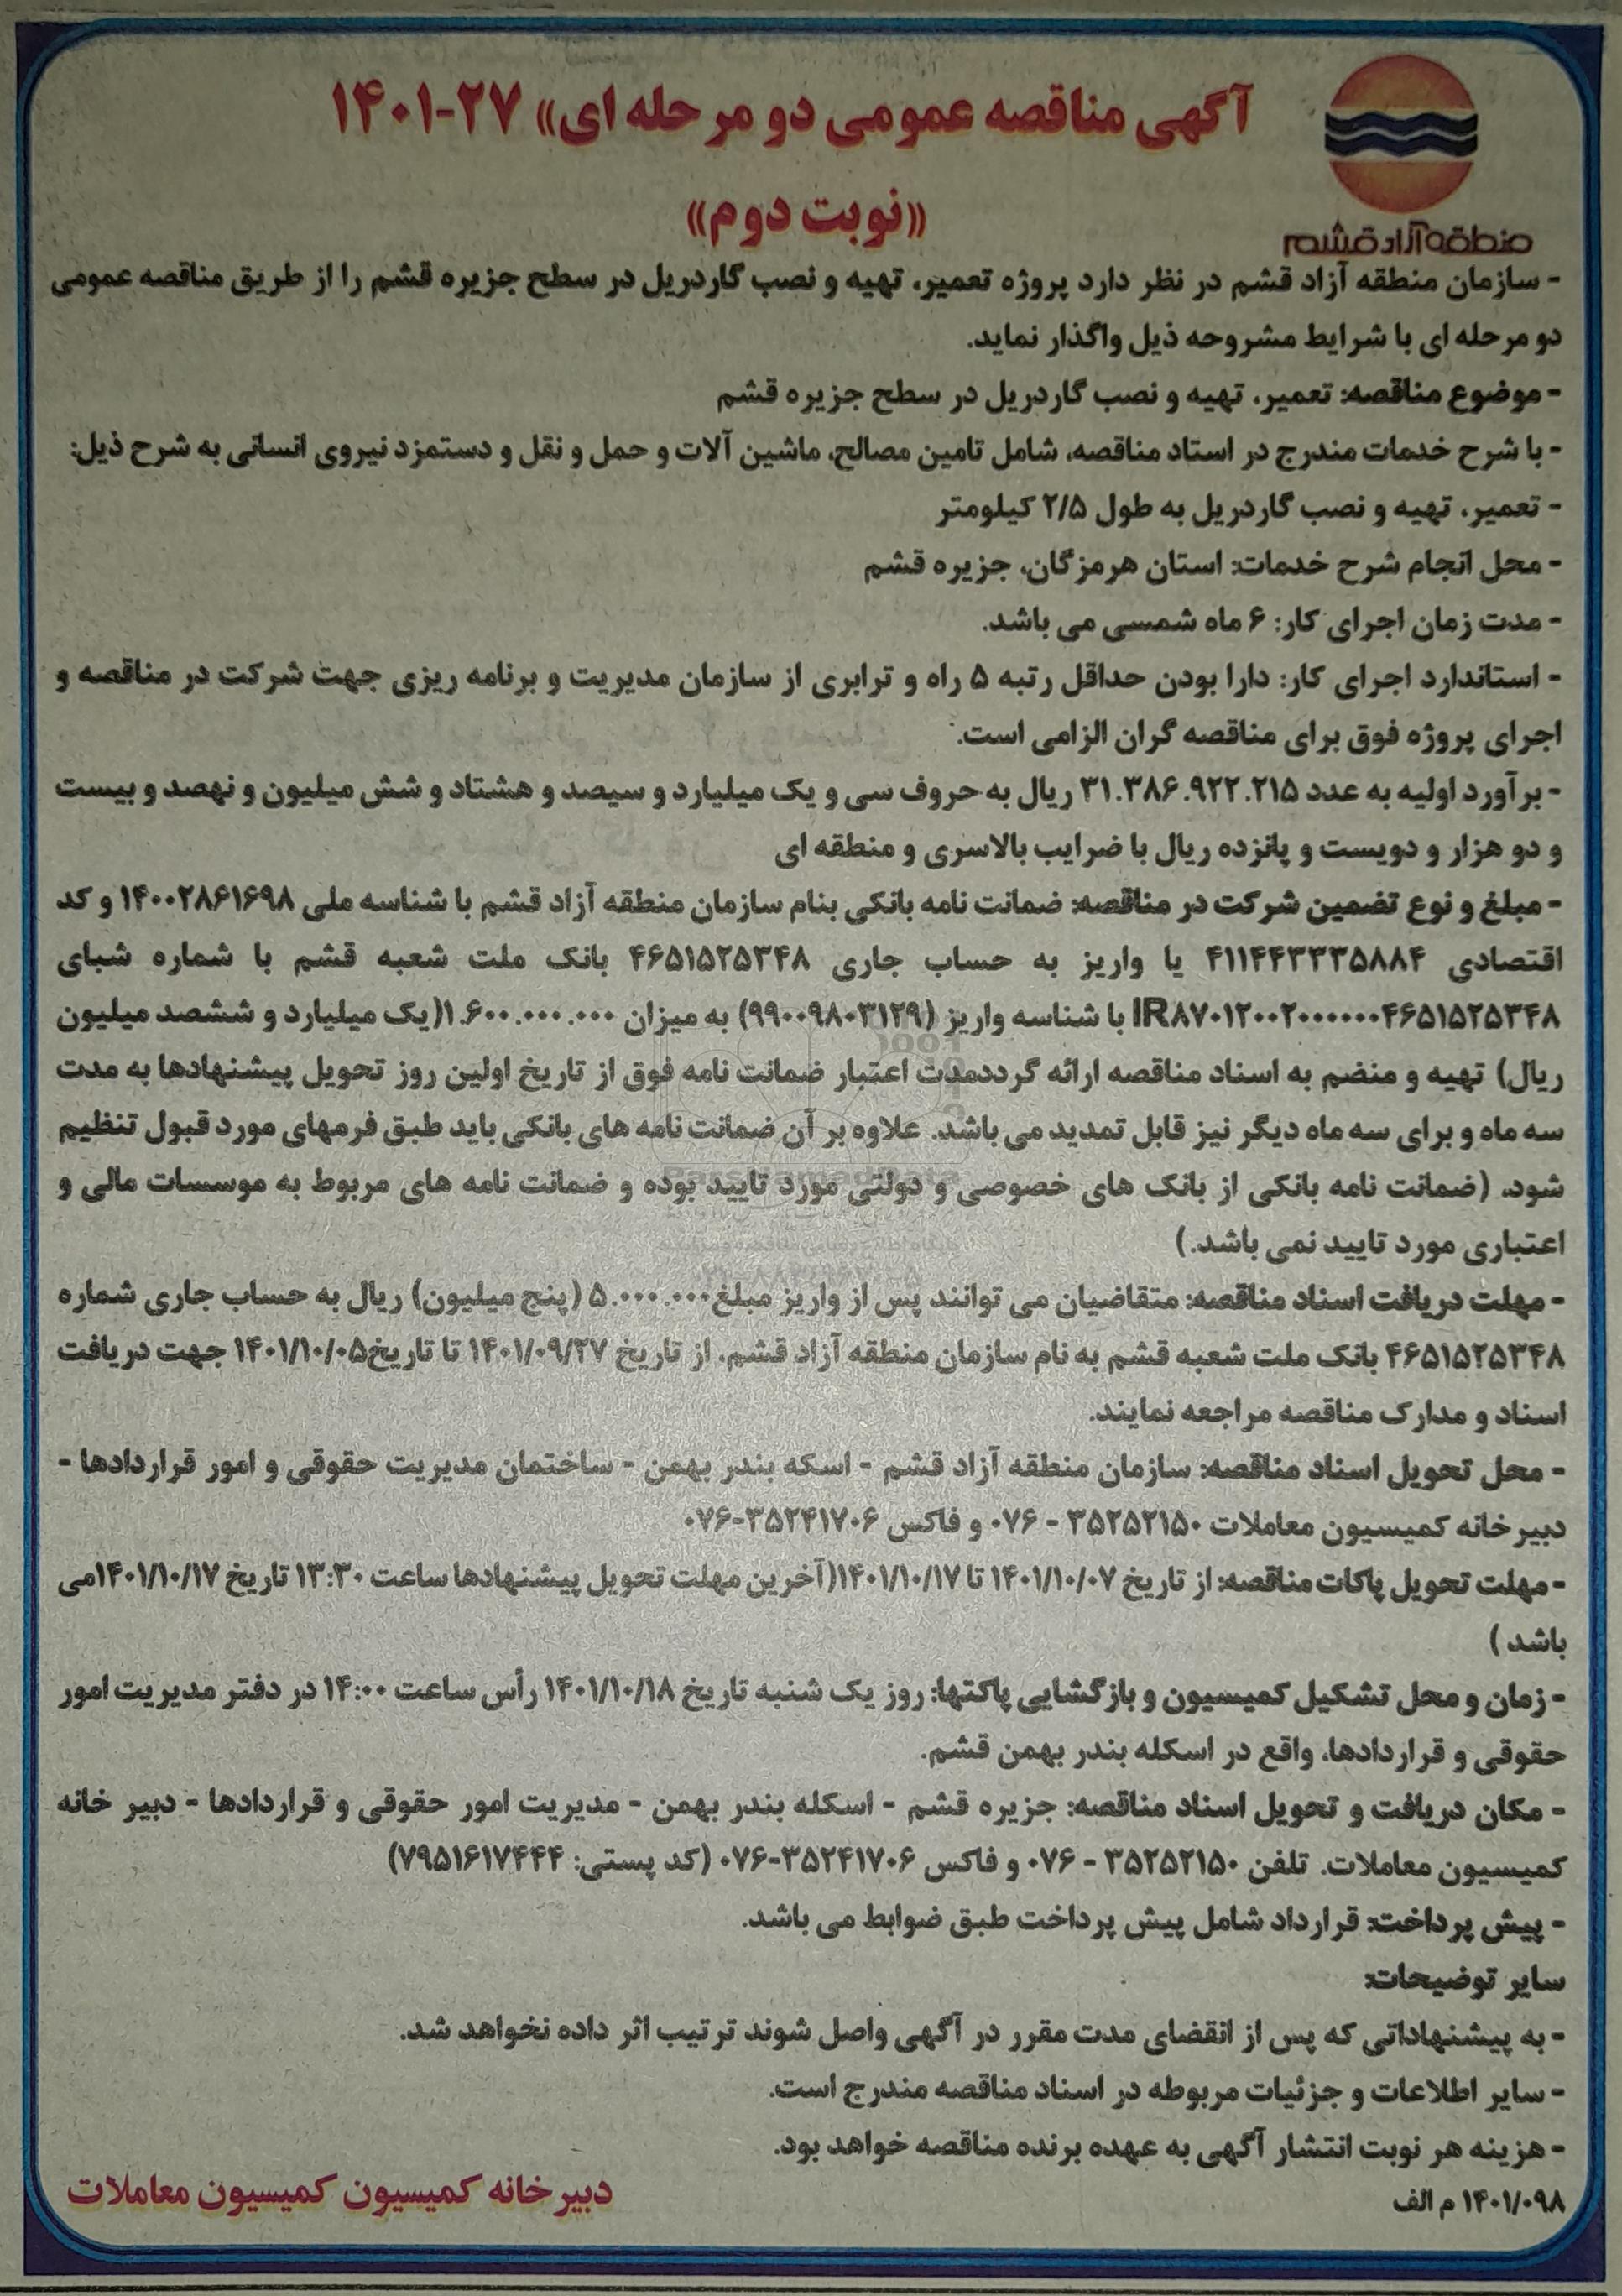 آگهی مناقصه عمومی دو مرحله ای» ۲۷-۱۴۰۱
«نوبت دوم»
منطقه آزاد قشم
- سازمان منطقه آزاد قشم در نظر دارد پروژه تعمیر، تهیه و نصب گاردریل در سطح جزیره قشم را از طریق مناقصه عمومی
دو مرحله ای با شرایط مشروحه ذیل واگذار نماید.
- موضوع مناقصه: تعمیر، تهیه و نصب گاردریل در سطح جزیره قشم
- با شرح خدمات مندرج در استاد مناقصه، شامل تامین مصالح، ماشین آلات و حمل و نقل و دستمزد نیروی انسانی به شرح ذیل:
- تعمیر، تهیه و نصب گاردریل به طول ۲/۵ کیلومتر
- محل انجام شرح خدمات: استان هرمزگان، جزیره قشم
- مدت زمان اجرای کار: ۶ ماه شمسی می باشد.
- استاندارد اجرای کار: دارا بودن حداقل رتبه ۵ راه و ترابری از سازمان مدیریت و برنامه ریزی جهت شرکت در مناقصه و
اجرای پروژه فوق برای مناقصه گران الزامی است.
- برآورد اولیه به عدد ۳۱.۳۸۶.۹۲۲.۲۱۵ ریال به حروف سی و یک میلیارد و سیصد و هشتاد و شش میلیون و نهصد و بیست
و دو هزار و دویست و پانزده ریال با ضرایب بالاسری و منطقه ای
- مبلغ و نوع تضمین شرکت در مناقصه: ضمانت نامه بانکی بنام سازمان منطقه آزاد قشم با شناسه ملی ۱۴۰۰۲۸۶۱۶۹۸ و کد
اقتصادی ۴۱۱۴۴۳۳۳۵۸۸۴ یا واریز به حساب جاری ۴۶۵۱۵۲۵۳۴۸ بانک ملت شعبه قشم با شماره شبای
IR۸۷۰۱۲۰۰۲۰۰۰۰۰۰۴۶۵۱۵۲۵۳۴۸ با شناسه واریز (۹۹۰۰۹۸۰۳۱۲۹) به میزان ۱.۶۰۰.۰۰۰.۰۰۰(یک میلیارد و ششصد میلیون
ریال) تهیه و منضم به اسناد مناقصه ارائه گرددمدت اعتبار ضمانت نامه فوق از تاریخ اولین روز تحویل پیشنهادها به مدت
سه ماه و برای سه ماه دیگر نیز قابل تمدید می باشد. علاوه بر آن ضمانت نامه های بانکی باید طبق فرمهای مورد قبول تنظیم
شود. (ضمانت نامه بانکی از بانک های خصوصی و دولتی مورد تایید بوده و ضمانت نامه های مربوط به موسسات مالی و
اعتباری مورد تایید نمی باشد.)
- مهلت دریافت اسناد مناقصه: متقاضیان می توانند پس از واریز مبلغ ۵.۰۰۰.۰۰۰ (پنج میلیون) ریال به حساب جاری شماره
۴۶۵۱۵۲۵۳۴۸ بانک ملت شعبه قشم به نام سازمان منطقه آزاد قشم، از تاریخ ۱۴۰۱/۰۹/۲۷ تا تاریخ۱۴۰۱/۱۰/۰۵ جهت دریافت
اسناد و مدارک مناقصه مراجعه نمایند.
- محل تحویل اسناد مناقصه: سازمان منطقه آزاد قشم - اسکه بندر بهمن - ساختمان مدیریت حقوقی و امور قراردادها -
دبیر خانه کمیسیون معاملات ۳۵۲۵۲۱۵۰ - ۰۷۶ و فاکس ۳۵۲۴۱۷۰۶-۰۷۶
- مهلت تحویل پاکات مناقصه: از تاریخ ۱۴۰۱/۱۰/۰۷ تا ۱۴۰۱/۱۰/۱۷(آخرین مهلت تحویل پیشنهادها ساعت ۱۳:۳۰ تاریخ ۱۴۰۱/۱۰/۱۷می
باشد )
- زمان و محل تشکیل کمیسیون و بازگشایی پاکتها: روز یک شنبه تاریخ ۱۴۰۱/۱۰/۱۸ رأس ساعت ۱۴:۰۰ در دفتر مدیریت امور
حقوقی و قراردادها، واقع در اسکله بندر بهمن قشم.
- مکان دریافت و تحویل اسناد مناقصه: جزیره قشم - اسکله بندر بهمن - مدیریت امور حقوقی و قراردادها - دبیر خانه
کمیسیون معاملات. تلفن ۳۵۲۵۲۱۵۰ - ۰۷۶ و فاکس ۳۵۲۴۱۷۰۶-۰۷۶ (کد پستی: ۷۹۵۱۶۱۷۴۴۴)
- پیش پرداخت: قرارداد شامل پیش پرداخت طبق ضوابط می باشد.
سایر توضیحات:
- به پیشنهاداتی که پس از انقضای مدت مقرر در آگهی واصل شوند ترتیب اثر داده نخواهد شد.
- سایر اطلاعات و جزئیات مربوطه در اسناد مناقصه مندرج است.
- هزینه هر نوبت انتشار آگهی به عهده برنده مناقصه خواهد بود.
۱۴۰۱/۰۹۸ م الف
دبیر خانه کمیسیون کمیسیون معاملات